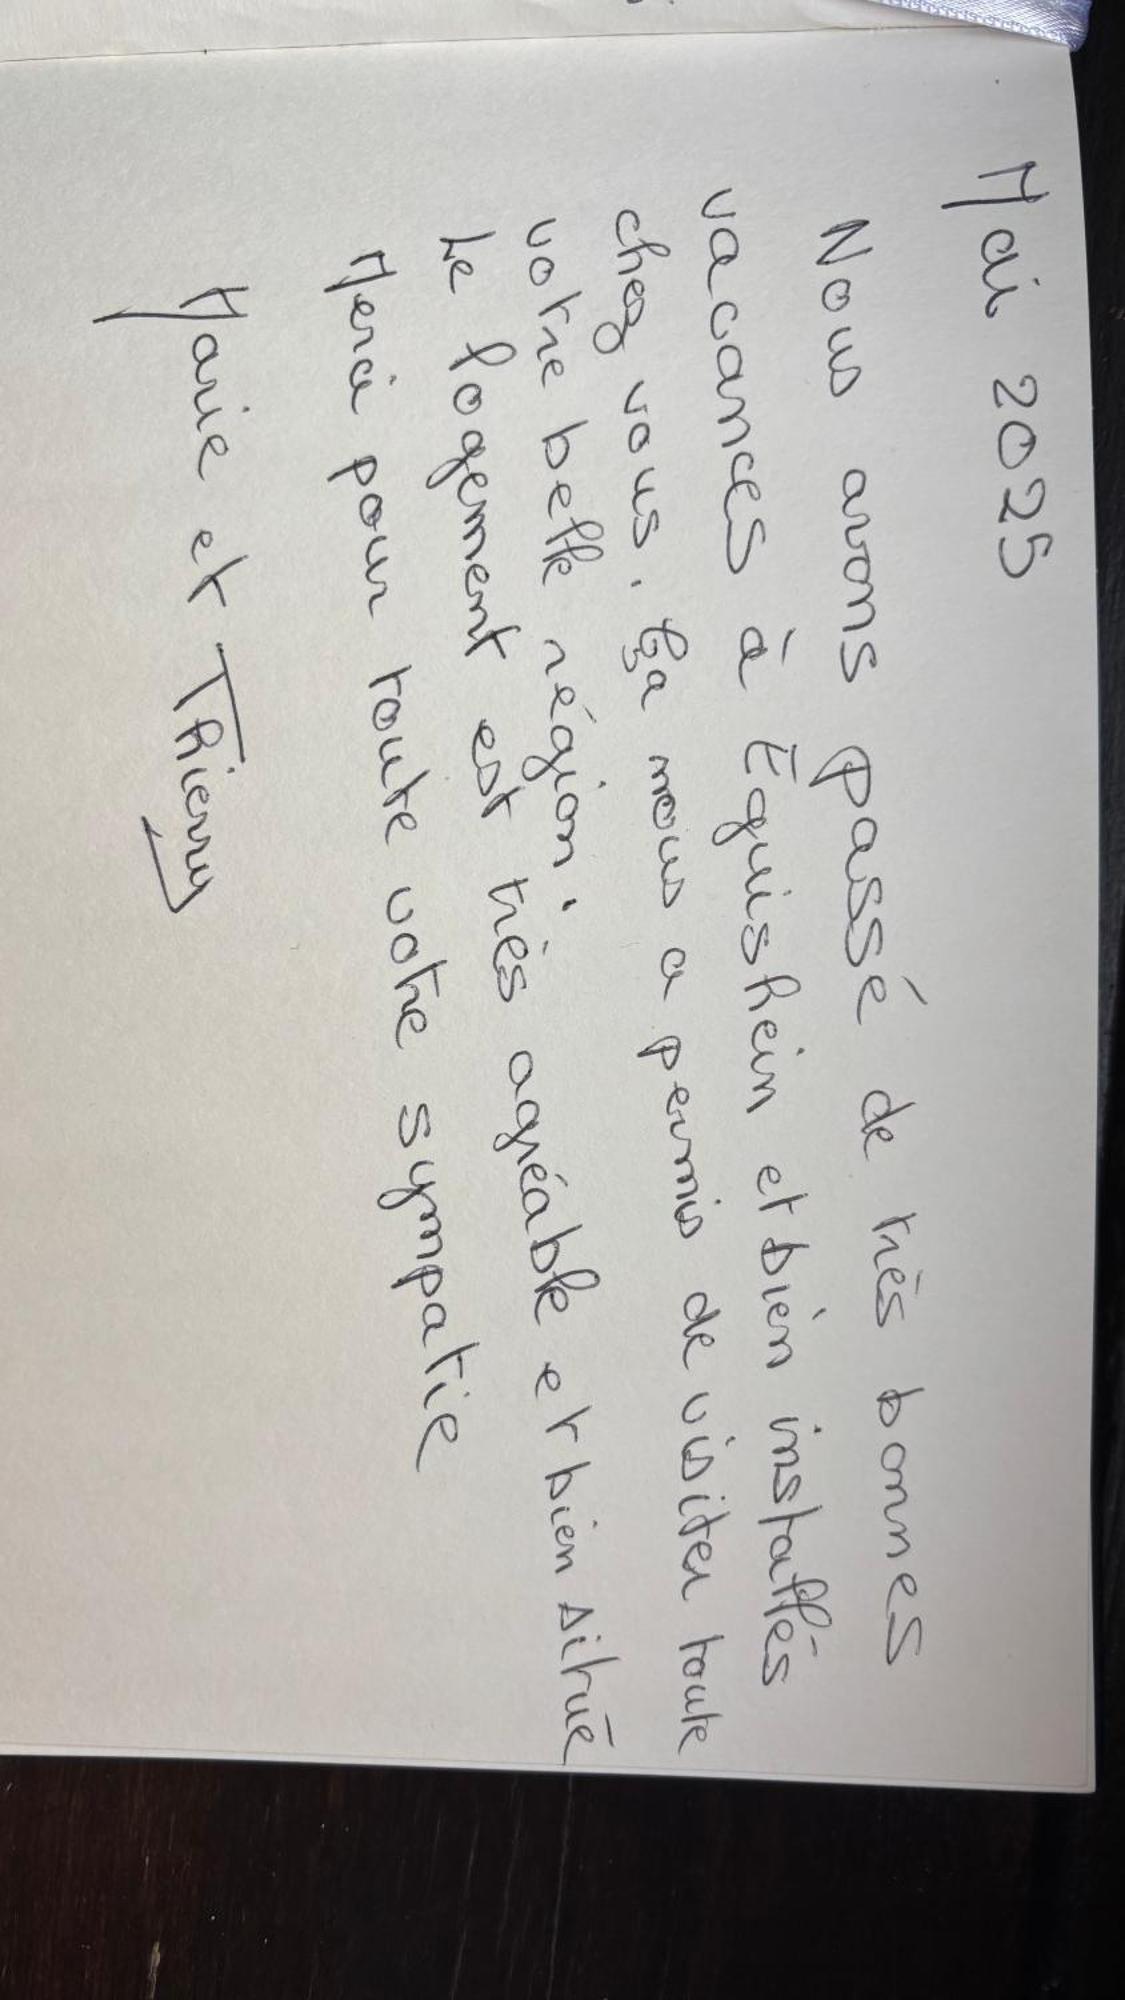 Mai 2025
Nous avons passé de très bonnes
vacances à Eguishein et bien installés
chez vous. Ça nous a permis de visiter toute
votre belle région.
Le logement est très agréable et bien situé
Merci pour toute votre sympatie
Marie et Thierry